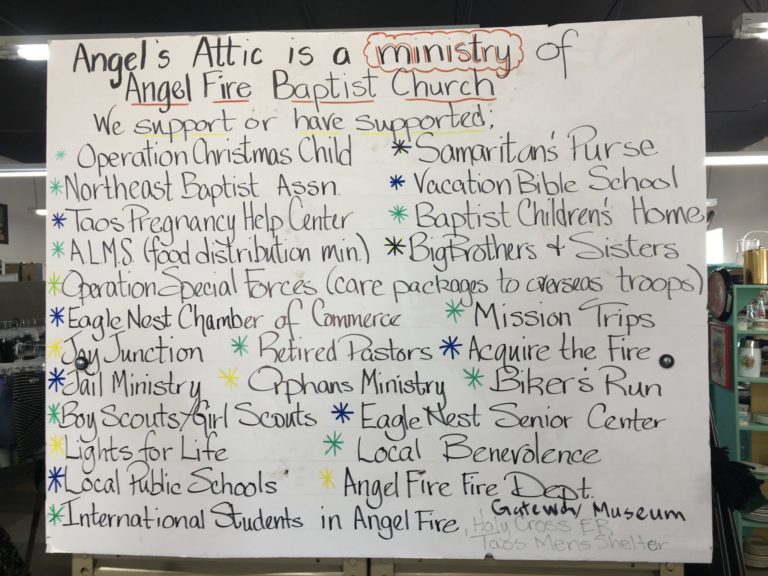 Angel's Attic is a ministry of
Angel Fire Baptist Church
We support or have supported:
* Operation Christmas Child * Samaritan's Purse
* Northeast Baptist Assn. * Vacation Bible School
* Taos Pregnancy Help Center * Baptist Children's Home
* A.L.M.S. (food distribution min.) * Big Brothers & Sisters
* Operation Special Forces (care packages to overseas troops)
* Eagle Nest Chamber of Commerce * Mission Trips
* Joy Junction * Retired Pastors * Acquire the Fire
* Jail Ministry * Orphans Ministry * Biker's Run
* Boy Scouts/Girl Scouts * Eagle Nest Senior Center
* Lights for Life * Local Benevolence
* Local Public Schools * Angel Fire Fire Dept.
* International Students in Angel Fire, Gateway Museum
Holy Cross ER
Taos Mens Shelter